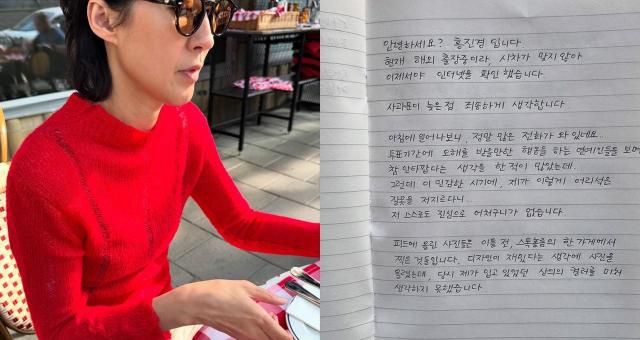 안녕하세요? 홍진경 입니다.
현재 해외 출장중이라, 시차가 맞지 않아
이제서야 인터넷을 확인 했습니다.
사과문이 늦은점 죄송하게 생각합니다
아침에 일어나보니, 정말 많은 전화가 와 있네요..
투표기간에 오해를 받을만한 행동을 하는 연예인들을 보며
참 안타깝다는 생각을 한적이 많았는데..
그런데 이 민감한 시기에, 제가 이렇게 어리석은
잘못을 저지르다니..
저 스스로도 진심으로 어처구니가 없습니다.
피드에 올린 사진들은 이틀 전, 스톡홀름의 한 가게에서
찍은 것들입니다. 디자인이 재밌다는 생각에 사진을
올렸는데, 당시 제가 입고 있었던 상의의 컬러를 미처
생각하지 못했습니다